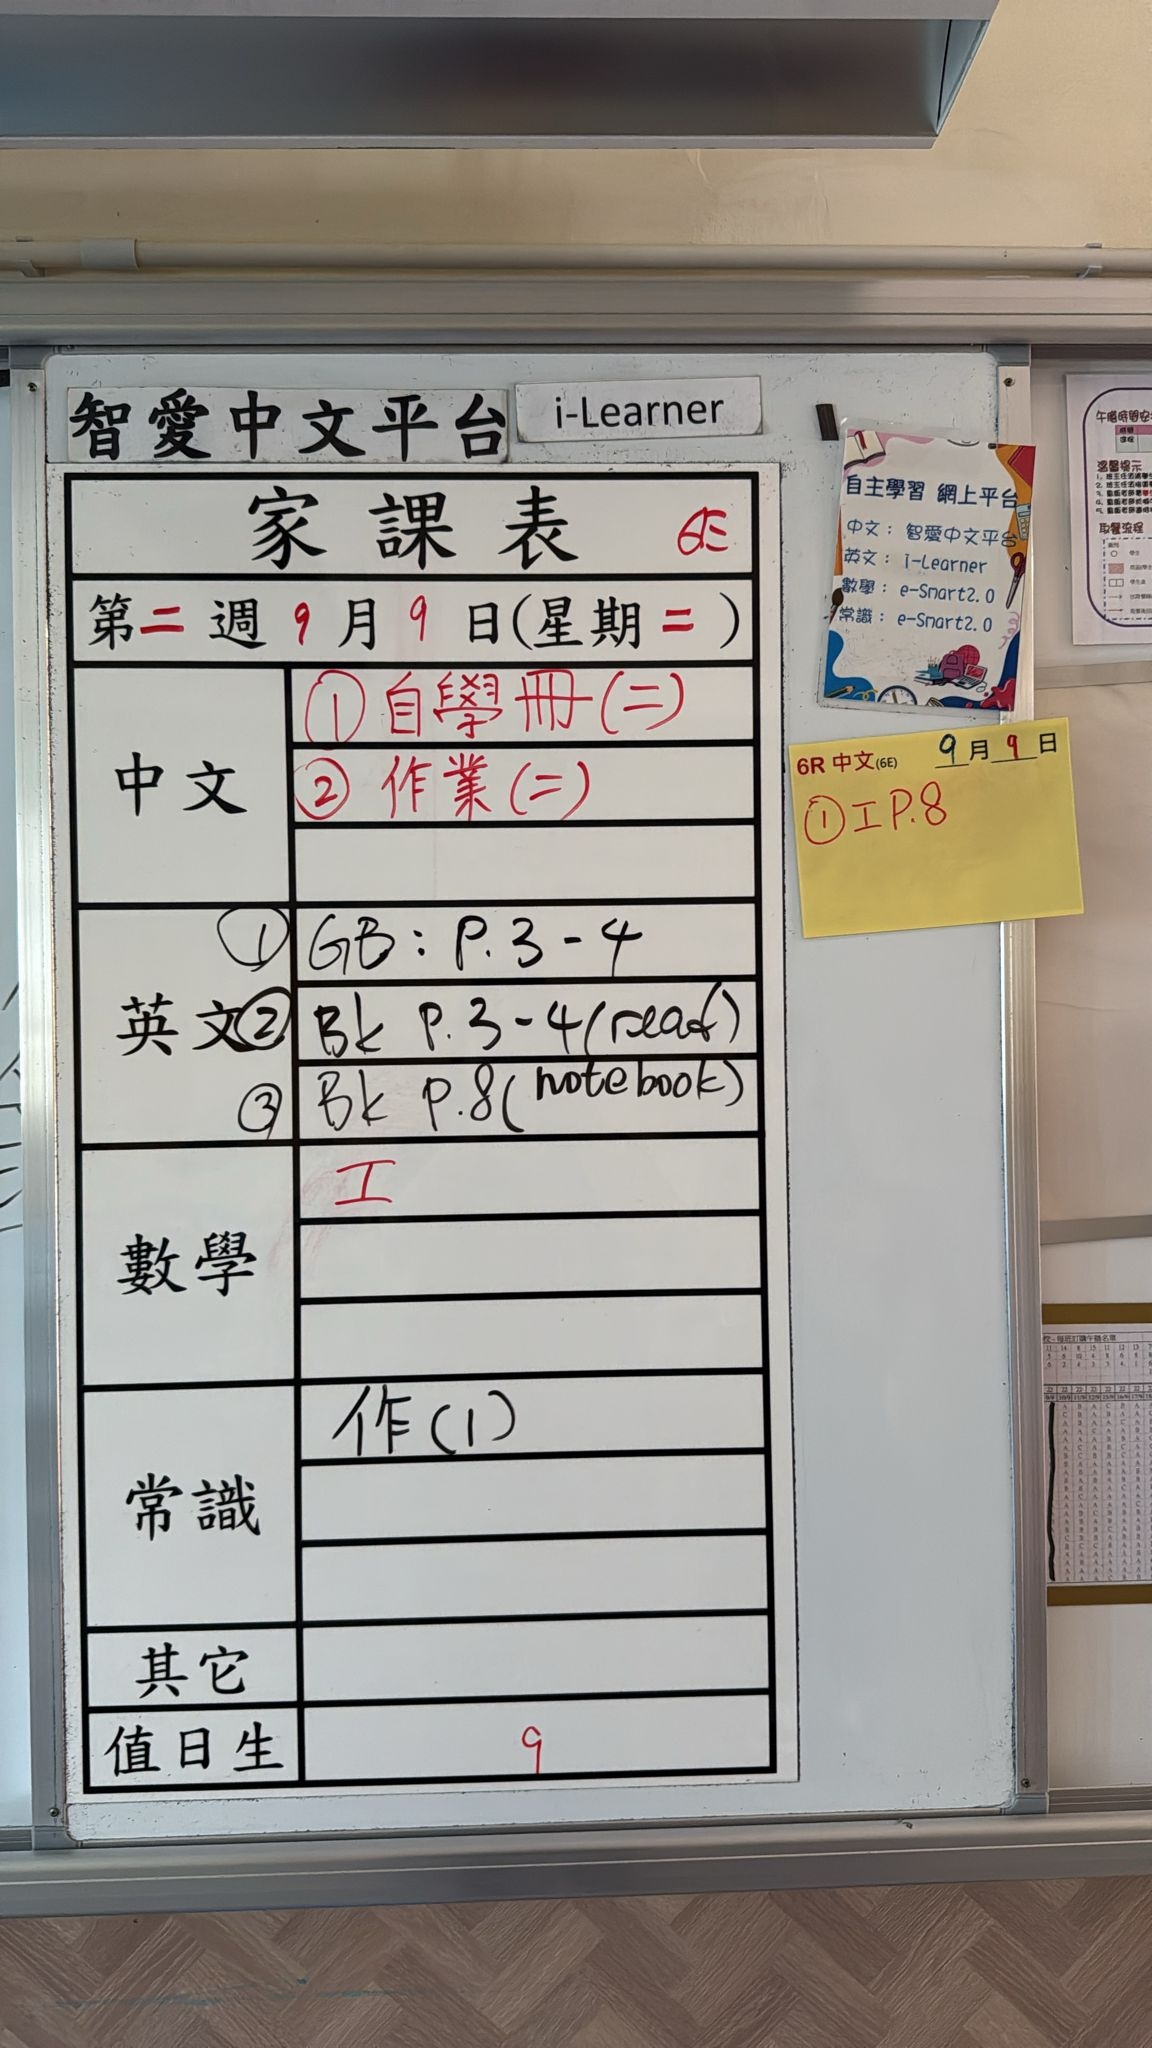 智愛中文平台 i-Learner
家課表 6E
第二週 9月9日(星期二)
中文
① 自學冊(二)
② 作業(二)
英文
① GB: P.3-4
② Bk P.3-4(read)
③ Bk P.8(notebook)
數學
工
常識
作(1)
其它
值日生
9
自主學習 網上平台
中文：智愛中文平台
英文：i-Learner
數學：e-Smart2.0
常識：e-Smart2.0
6R 中文(6E) 9月9日
① 工 P.8
溫馨提示
取餐流程